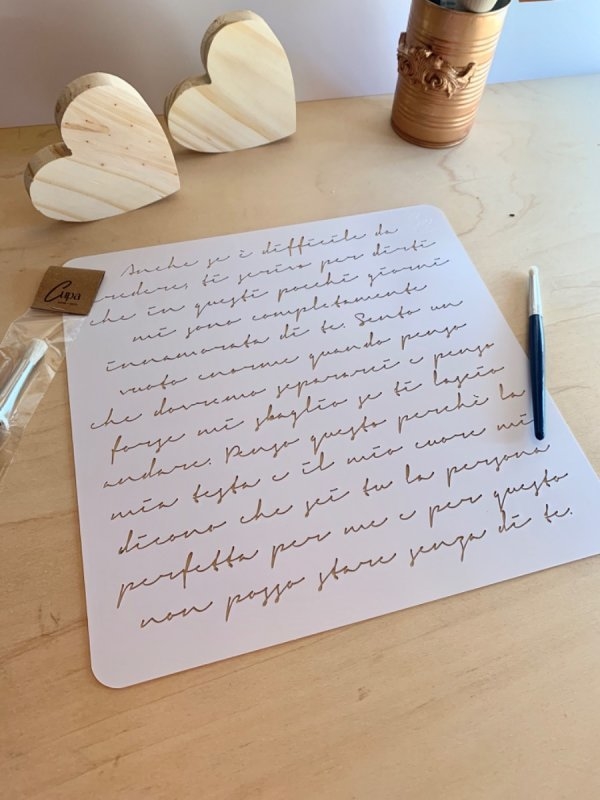 Anche se è difficile da
credere, ti scrivo per dirti
che in questi pochi giorni
mi sono completamente
innamorata di te. Sento un
vuoto enorme quando penso
che dovremo separarci e penso
forse mi sbaglio se ti lascio
andare. Penso questo perchè la
mia testa e il mio cuore mi
dicono che sei tu la persona
perfetta per me e per questo
non posso stare senza di te.
Cupa